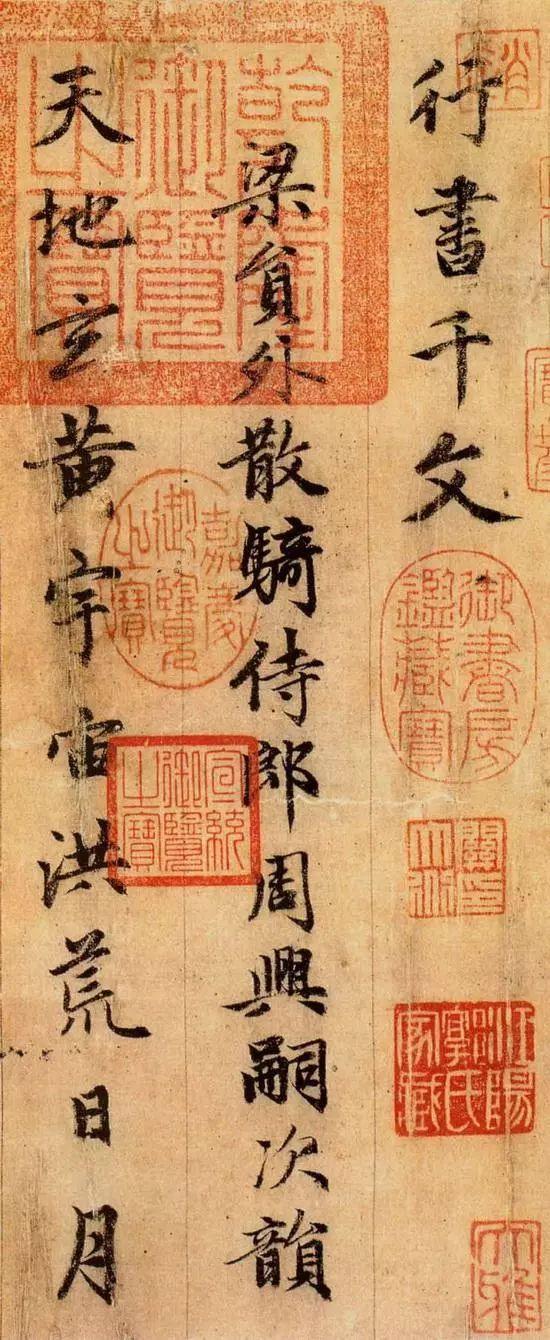 行書千文
御書房鑑藏寶
梁員外散騎侍郎周興嗣次韻
乾隆御覽之寶
嘉慶御覽之寶
宣統御覽之寶
天地玄黄宇宙洪荒日月